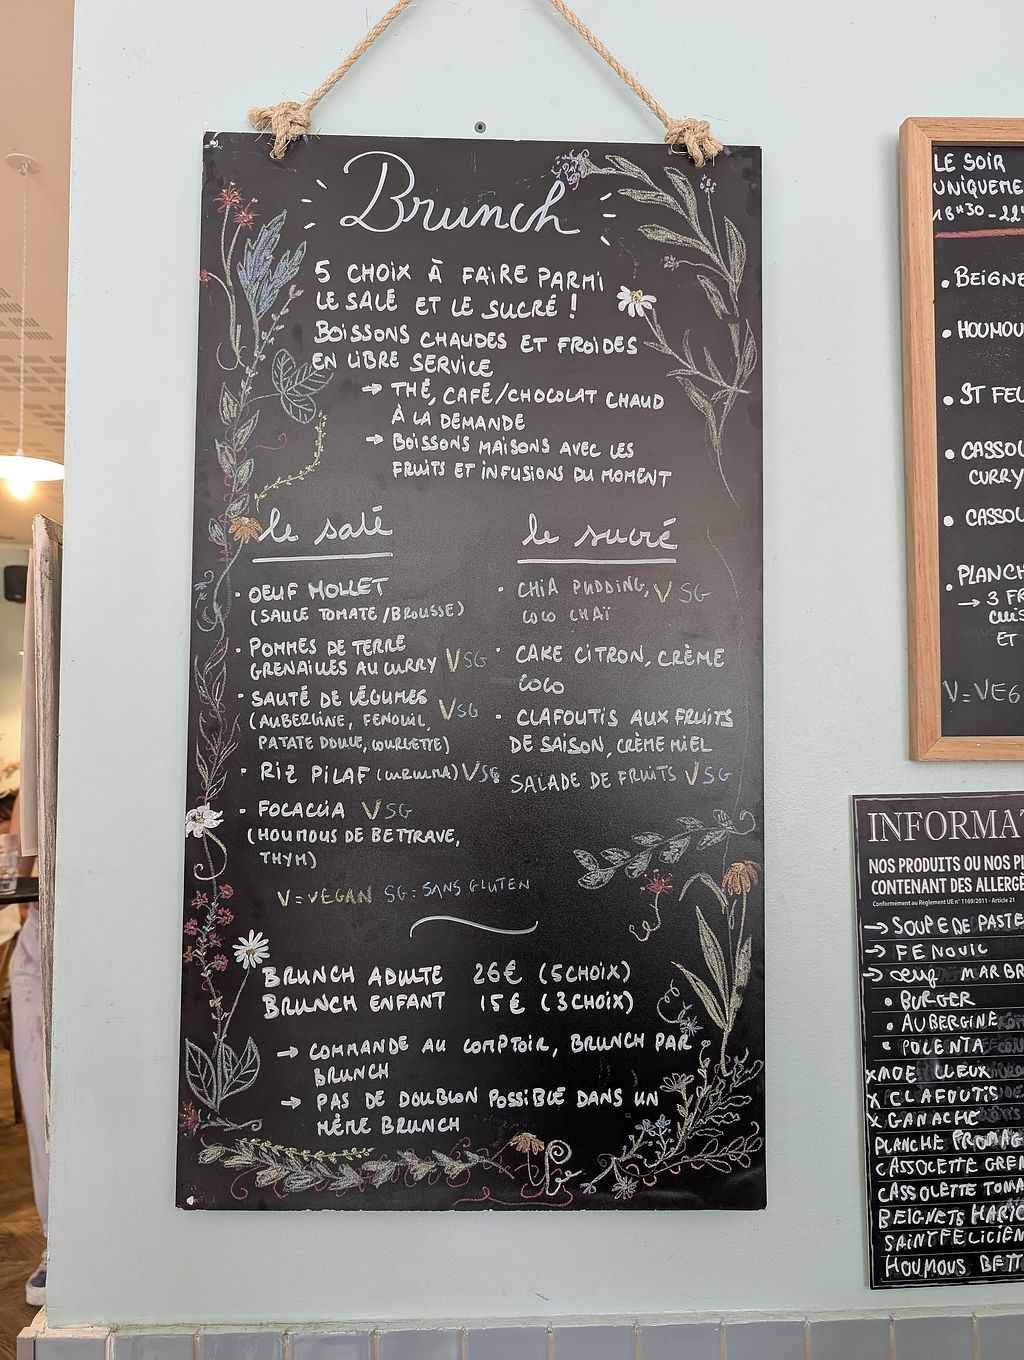 Brunch
5 CHOIX À FAIRE PARMI
LE SALÉ ET LE SUCRÉ !
BOISSONS CHAUDES ET FROIDES
EN LIBRE SERVICE
→ THÉ, CAFÉ/CHOCOLAT CHAUD
À LA DEMANDE
→ BOISSONS MAISONS AVEC LES
FRUITS ET INFUSIONS DU MOMENT
le salé
• OEUF MOLLET
(SAUCE TOMATE/BROUSSE)
• POMMES DE TERRE
GRENAILLES AU CURRY V SG
• SAUTÉ DE LÉGUMES V SG
(AUBERGINE, FENOUIL,
PATATE DOUCE, COURGETTE)
• RIZ PILAF (CURCUMA) V SG
• FOCACCIA V SG
(HOUMOUS DE BETTRAVE,
THYM)
le sucré
• CHIA PUDDING, V SG
COCO CHAÏ
• CAKE CITRON, CRÈME
COCO
• CLAFOUTIS AUX FRUITS
DE SAISON, CRÈME MIEL
• SALADE DE FRUITS V SG
V = VEGAN SG: SANS GLUTEN
BRUNCH ADULTE 26€ (5 CHOIX)
BRUNCH ENFANT 15€ (3 CHOIX)
→ COMMANDE AU COMPTOIR, BRUNCH PAR
BRUNCH
→ PAS DE DOUBLON POSSIBLE DANS UN
MÊME BRUNCH
LE SOIR
UNIQUEME
18H30 - 22H
• BEIGNE
• HOUMOU
• ST FEL
• CASSOL
CURRY
• CASSOL
• PLANCH
→ 3 FR
CUIS
ET
V = VEG
INFORMAT
NOS PRODUITS OU NOS PL
CONTENANT DES ALLERGÈ
Conformément au Règlement UE n° 1169/2011 - Article 21
→ SOUPE DE PASTE
→ FENOUIL
→ OEUF MARBR
• BURGER
• AUBERGINE
• POLENTA
X MOELLEUX
X CLAFOUTIS
X GANACHE
PLANCHE FROMAG
CASSOLETTE GREN
CASSOLETTE TOMA
BEIGNETS HARIC
SAINT FELICIEN
HOUMOUS BETT